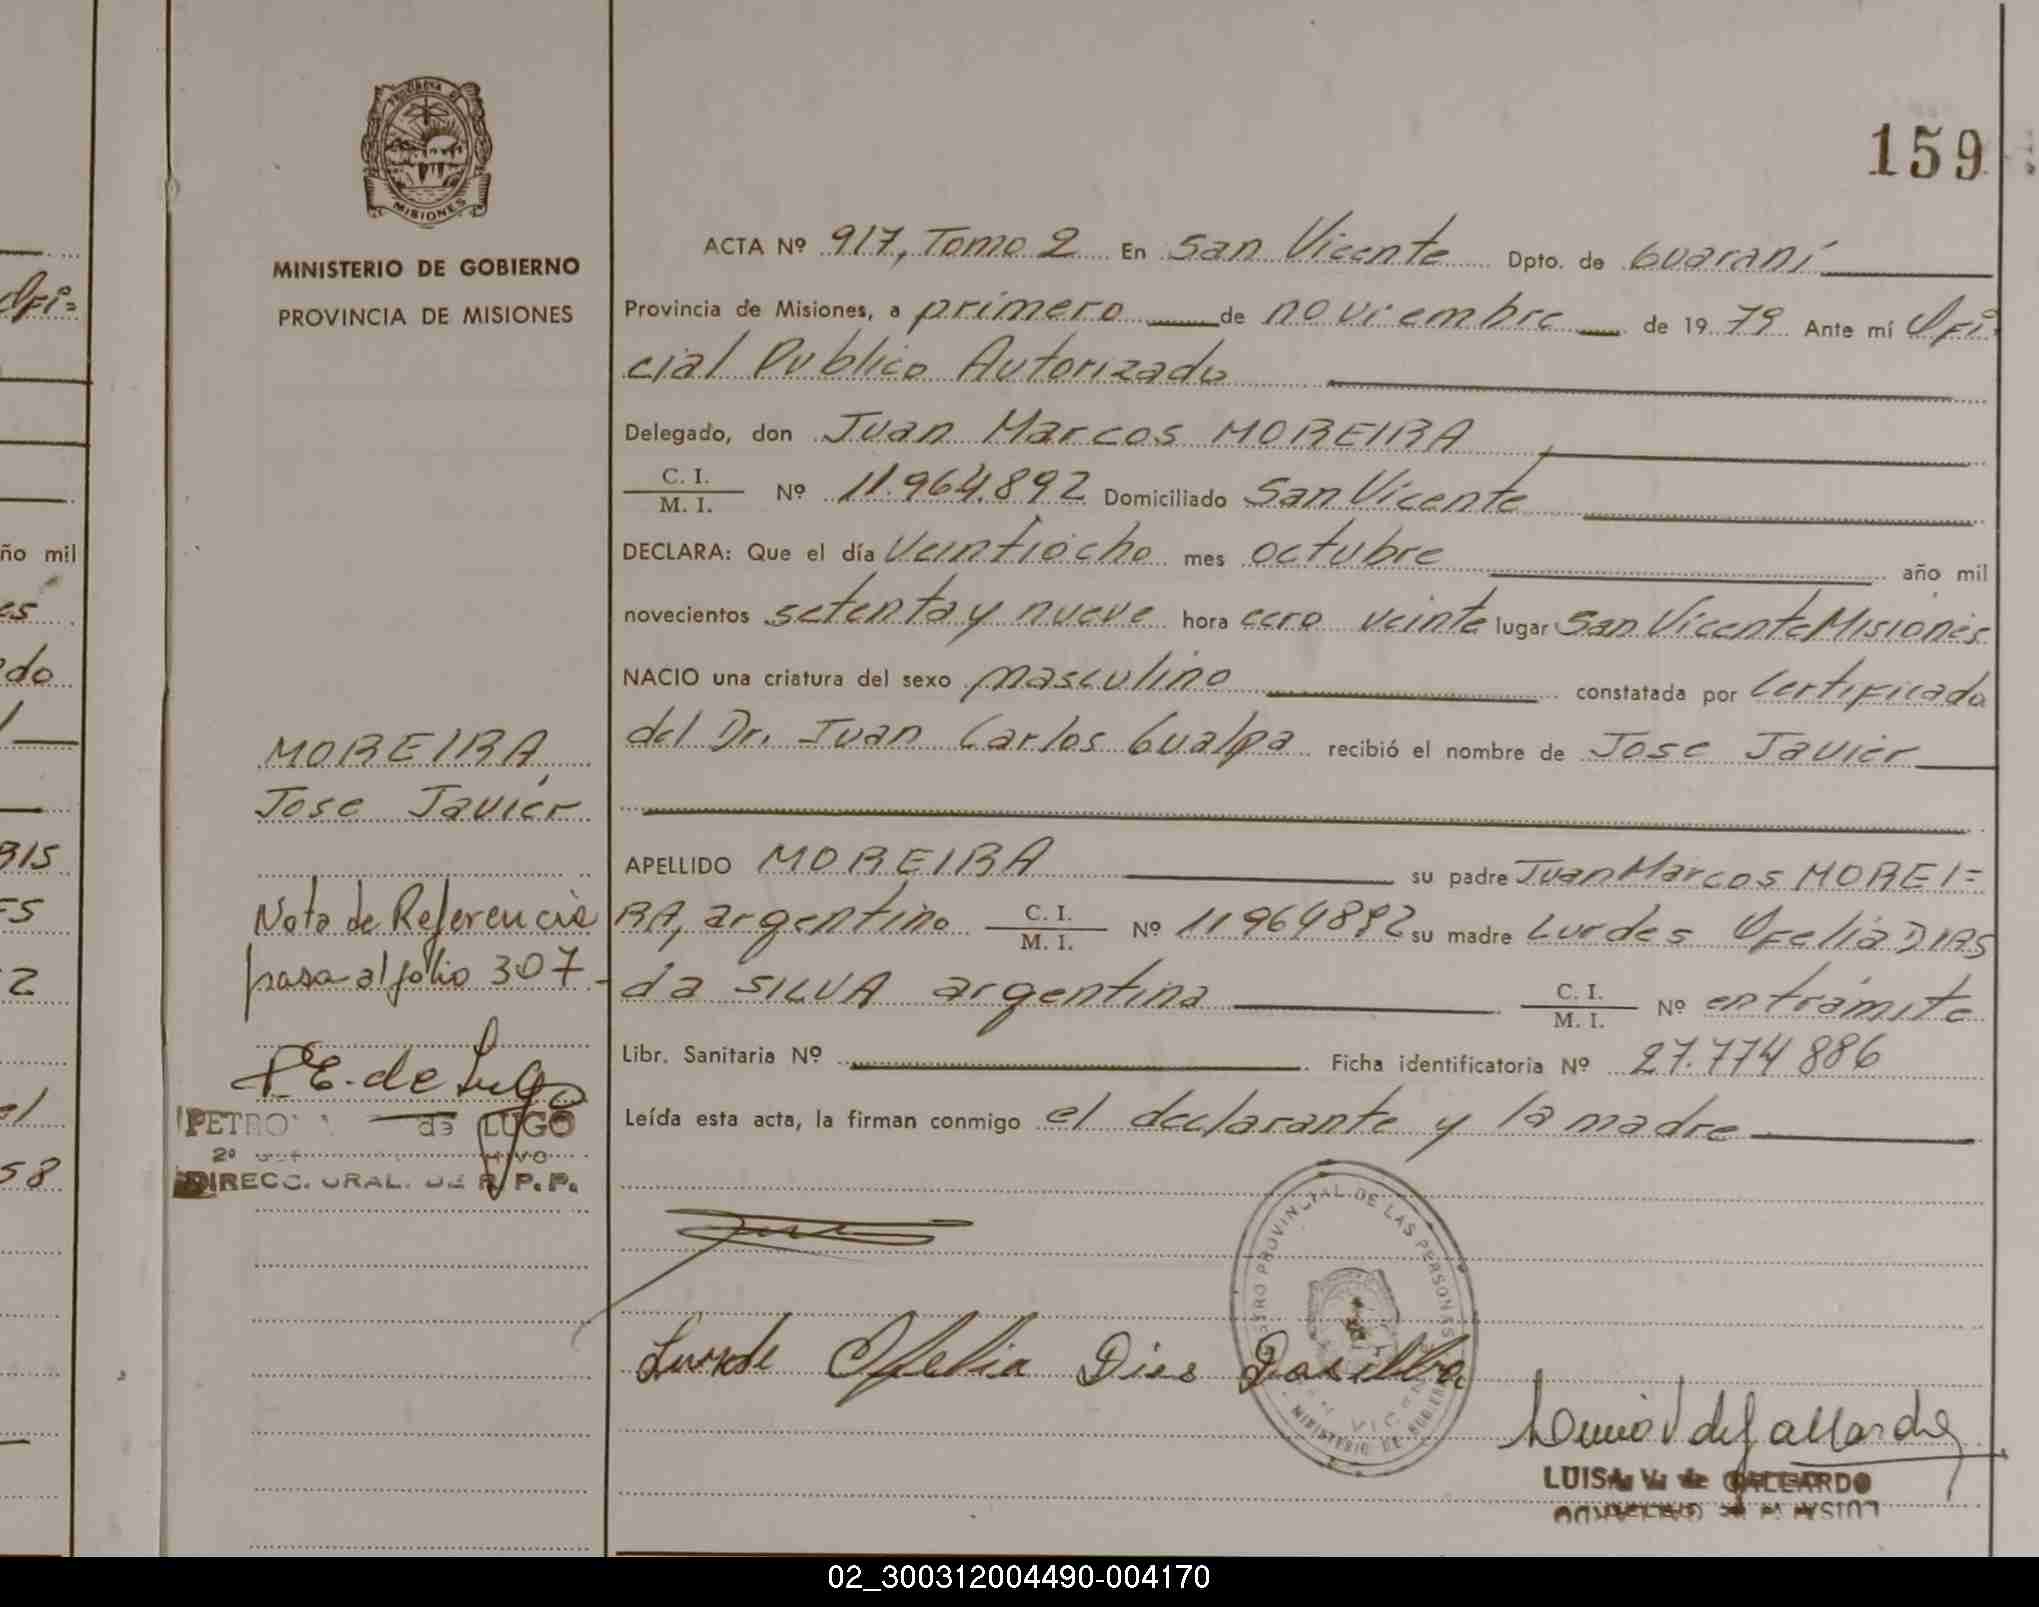 159
PROVINCIA DE
MISIONES
MINISTERIO DE GOBIERNO
PROVINCIA DE MISIONES
ACTA Nº 917, Tomo 2 En San Vicente Dpto. de Guaraní
Provincia de Misiones, a primero de noviembre de 1979 Ante mí Ofi-
cial Publico Autorizado
Delegado, don Juan Marcos MOREIRA
C. I.
M. I. Nº 11.964.892 Domiciliado San Vicente
DECLARA: Que el día veintiocho mes octubre año mil
novecientos setenta y nueve hora cero veinte lugar San Vicente Misiones
NACIO una criatura del sexo masculino constatada por Certificado
del Dr. Juan Carlos Gualpa recibió el nombre de Jose Javier
APELLIDO MOREIRA su padre Juan Marcos MOREI=
RA, argentino C. I. M. I. Nº 11964892 su madre Lurdes Ofelia DIAS
da SILVA argentina C. I. M. I. Nº en trámite
Libr. Sanitaria Nº Ficha identificatoria Nº 27.774 886
Leída esta acta, la firman conmigo el declarante y la madre
Lurde Ofelia Dies Dasilba
REGISTRO PROVINCIAL DE LAS PERSONAS
MINISTERIO DE GOBIERNO
LUISA V. de GALLARDO
MOREIRA,
Jose Javier
Nota de Referencia
pasa al folio 307-
P E. de Lugo
PETRO de LUGO
DIRECC. GRAL. DE R. P. P.
Ofi=
ño mil
es
do
315
ES
2
el
58
02_300312004490-004170